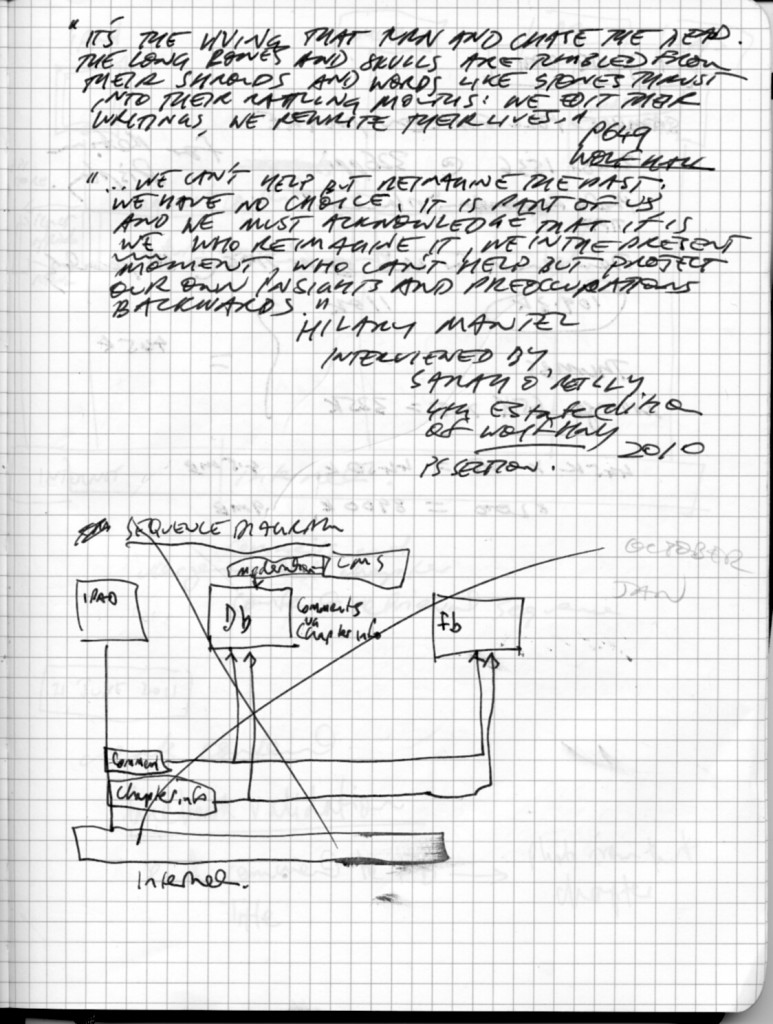 "IT'S THE LIVING THAT TURN AND CHASE THE DEAD.
THE LONG BONES AND SKULLS ARE TUMBLED FROM
THEIR SHROUDS AND WORDS LIKE STONES THRUST
INTO THEIR RATTLING MOUTHS: WE EDIT THEIR
WRITINGS, WE REWRITE THEIR LIVES."
P649
WOLF HALL
"... WE CAN'T HELP BUT REIMAGINE THE PAST.
WE HAVE NO CHOICE. IT IS PART OF US,
AND WE MUST ACKNOWLEDGE THAT IT IS
WE WHO REIMAGINE IT, WE IN THE PRESENT
MOMENT, WHO CAN'T HELP BUT PROJECT
OUR OWN INSIGHTS AND PREOCCUPATIONS
BACKWARDS."
HILARY MANTEL
INTERVIEWED BY
SARAH O'REILLY
4th Estate edition
OF Wolf Hall 2010
PS SECTION.
SEQUENCE DIAGRAM
moderation CMS
IPAD
Db
Comments
via
Chapter info
fb
Comment
Chapter info
Internet.